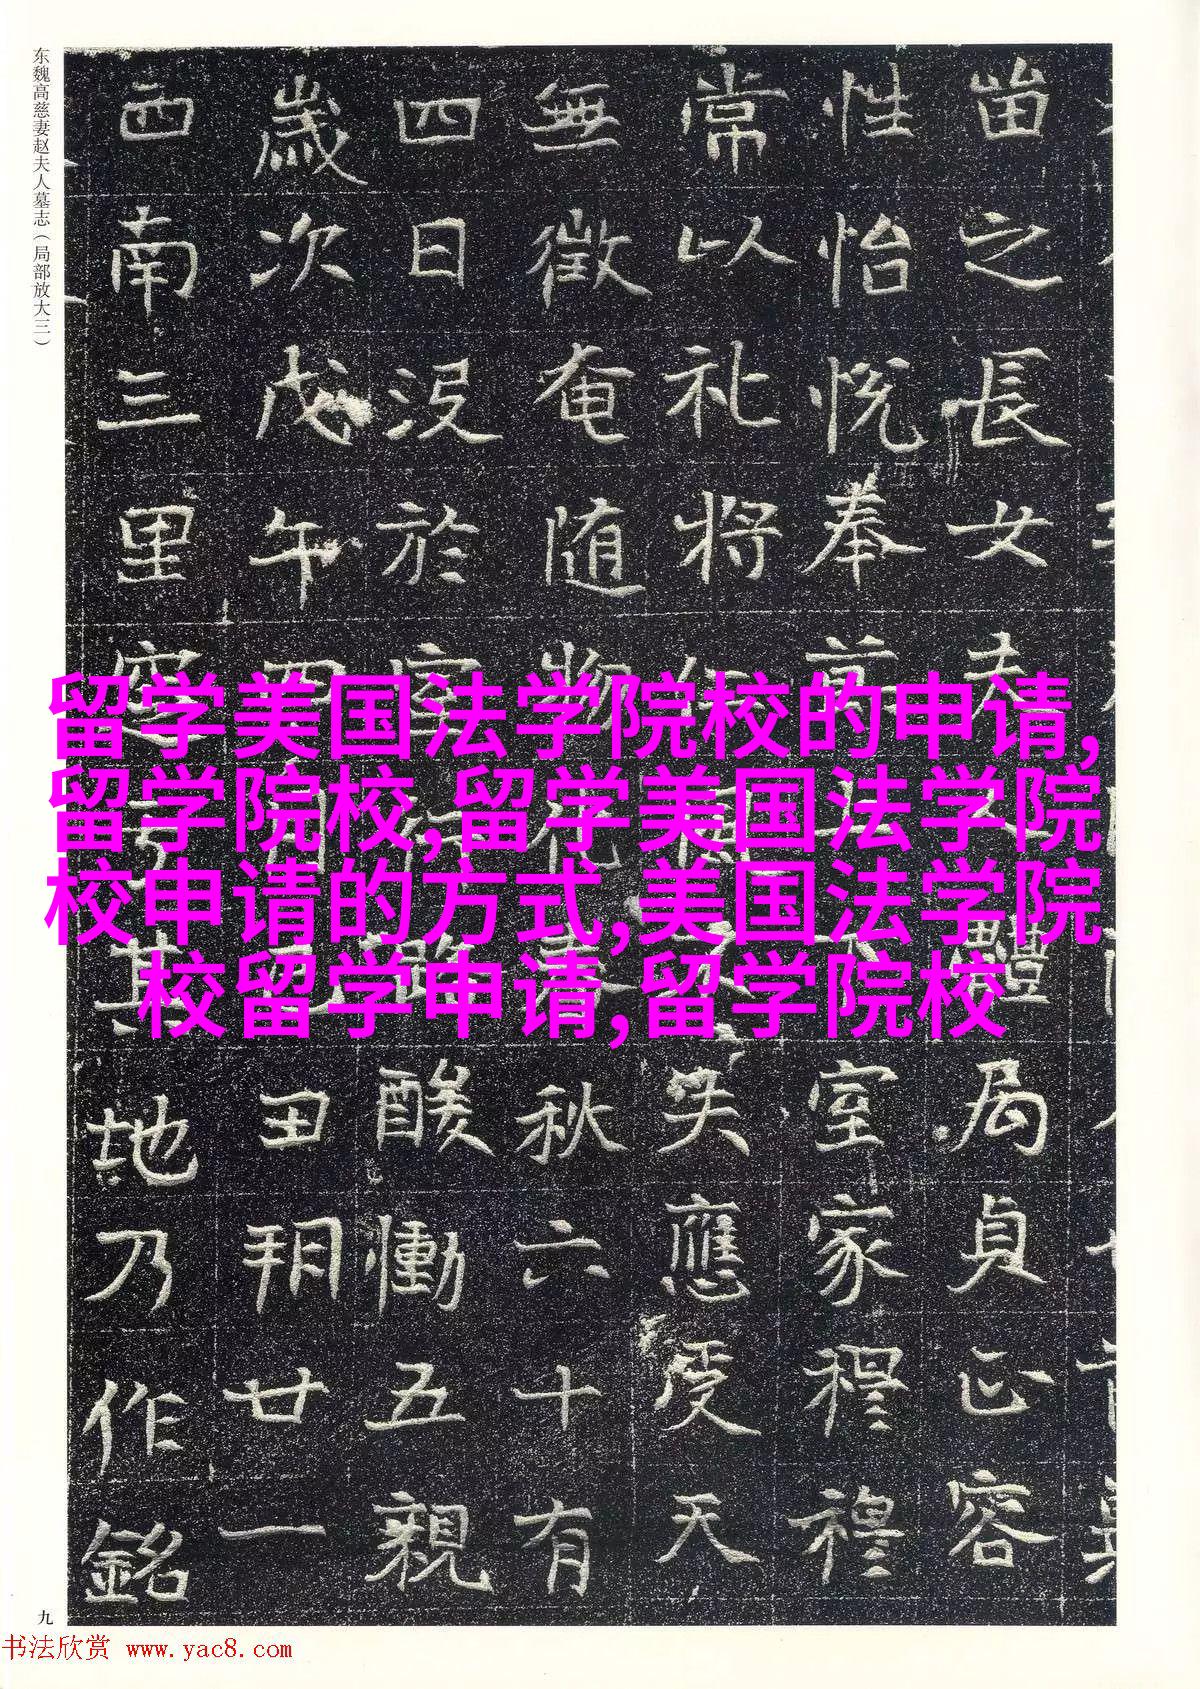 东魏高慈妻赵夫人墓志（局部放大三）
苗之長女
性怡悦奉
常以礼将
無徵奄随物
四日没於
歲次戊午四
西南三里
留学美国法学院校的申请,
留学院校,留学美国法学院
校申请的方式,美国法学院
校留学申请,留学院校
體局貞正容
室家穆穆
失應受天
秋六十有
酸慟五親
丑朔廿一
地乃作銘
九
书法欣赏 www.yac8.com